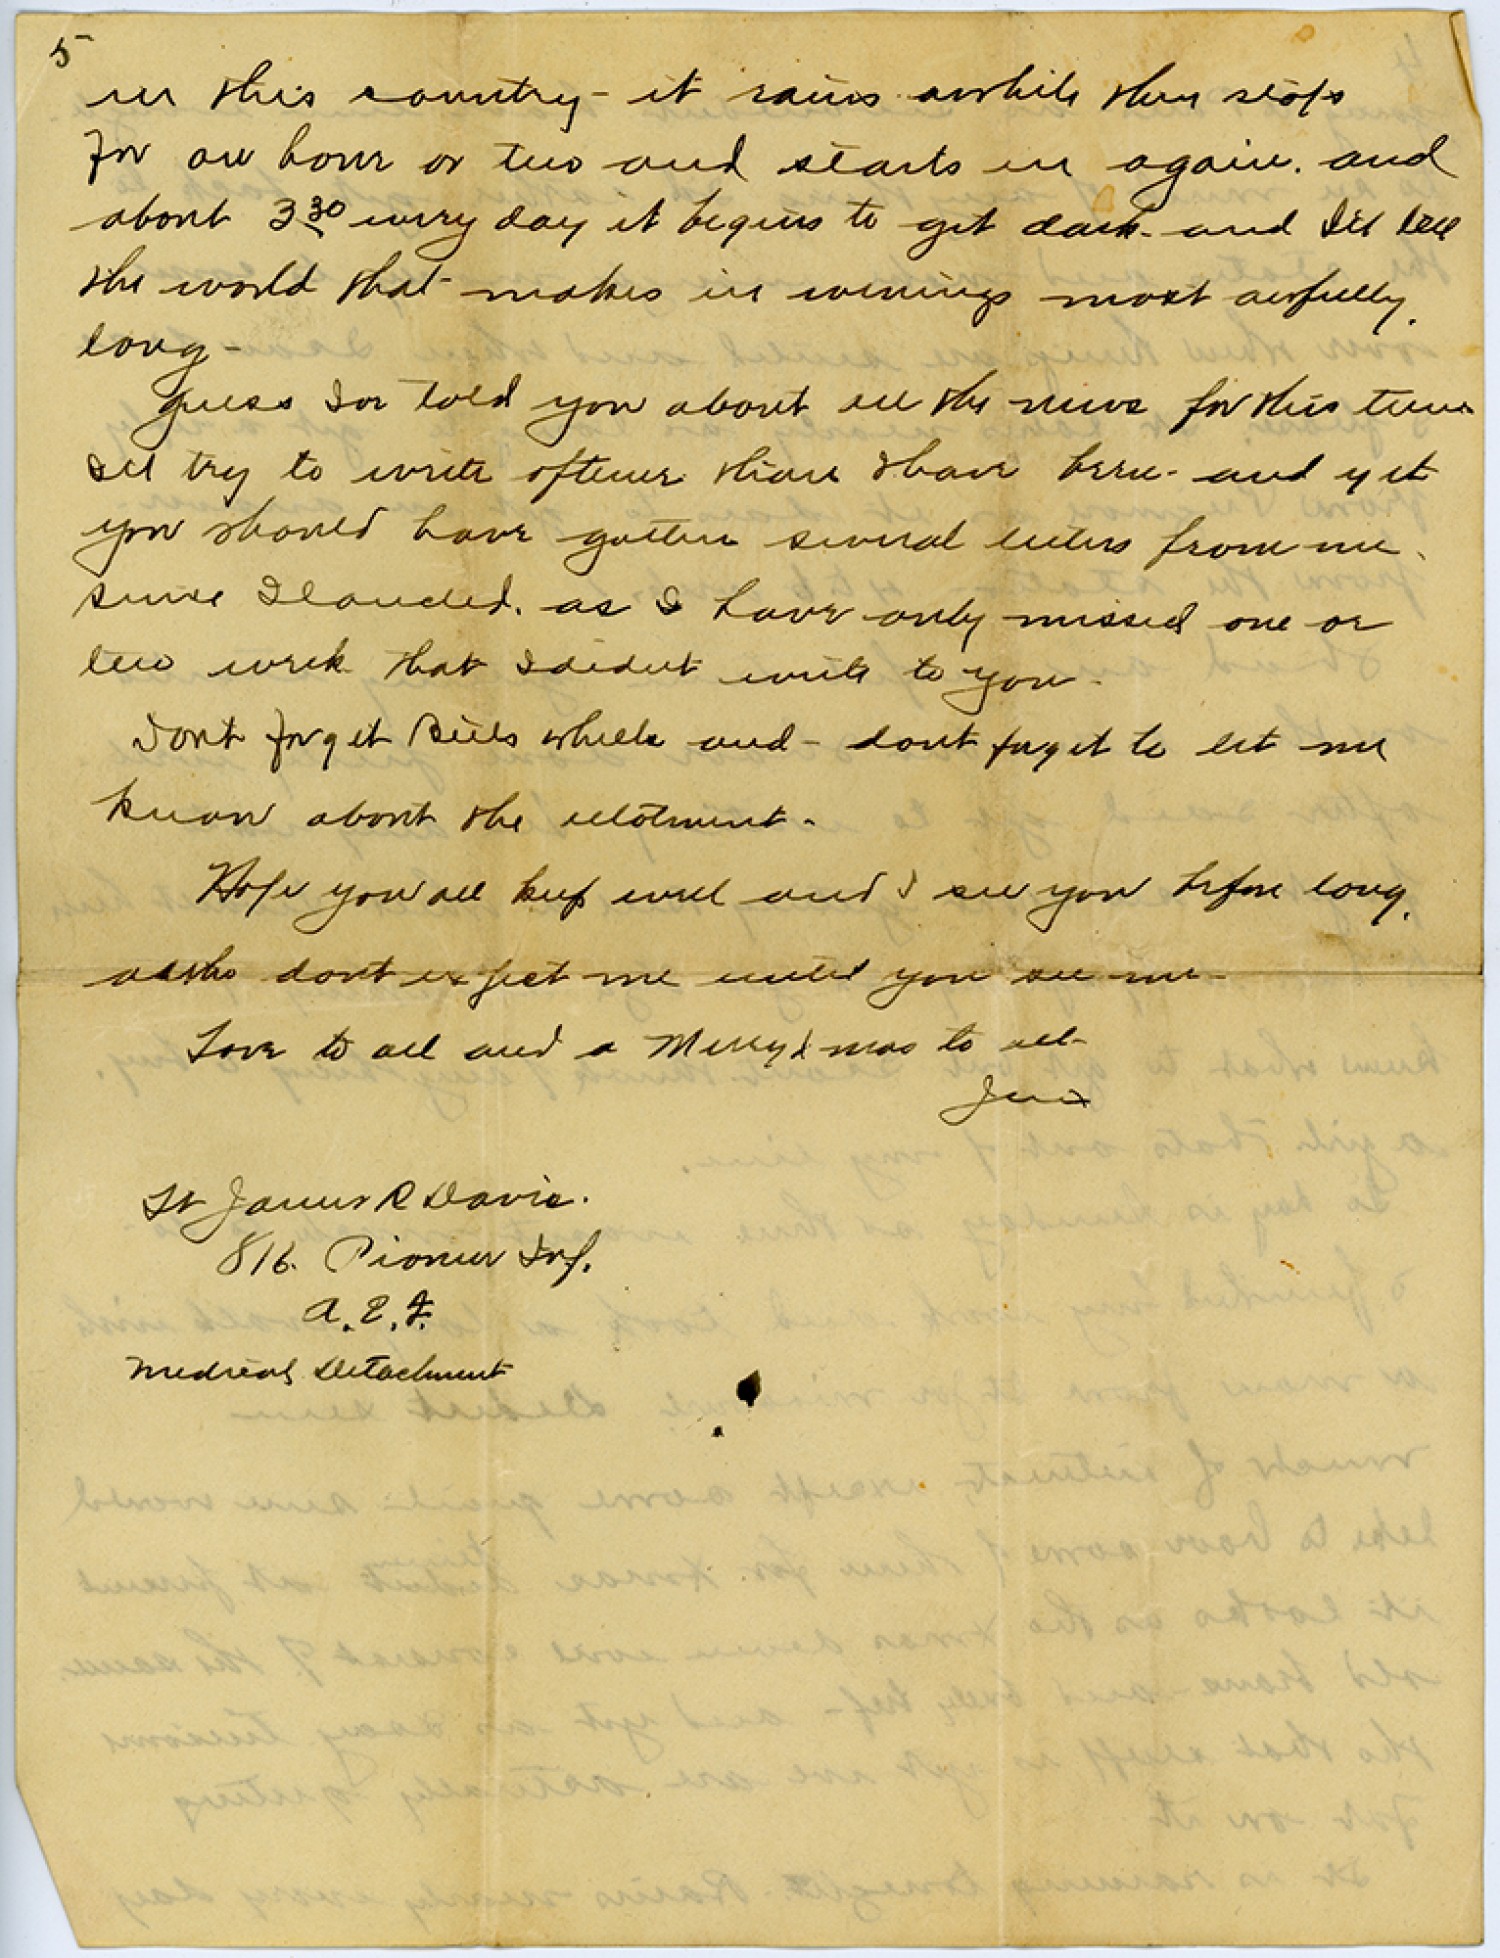 5
in this country - it rains awhile then stops
for an hour or two and starts in again. and
about 3 30 every day it begins to get dark - and I'll tell
the world that makes in evenings most awfully
long -
Guess I've told you about all the news for this time
I'll try to write oftener than I have been - and yet
you should have gotten several letters from me
since I landed. as I have only missed one or
two week that I didnt write to you -
Dont forget Bills wheels and - dont forget to let me
know about the allotment -
Hope you all keep well and I see you before long.
altho dont expect me until you see me -
Love to all and a Merry Xmas to all -
Jim
Lt James R Davis.
816. Pioneer Inf.
A. E. F.
Medical Detachment